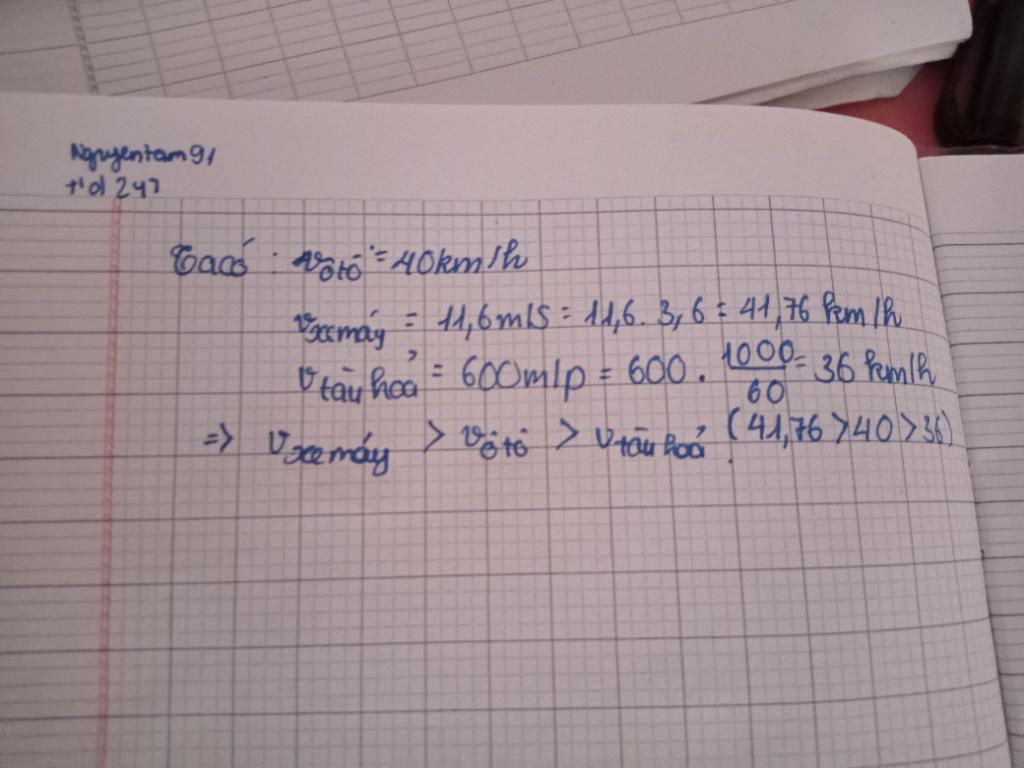 Nguyentam91
Ta có : vôtô = 40km/h
vxemáy = 11,6m/s = 11,6. 3,6 = 41,76 km/h
vtàu hoả = 600m/p = 600. 1000/60 = 36 km/h
=> vxemáy > vôtô > vtàu hoả. (41,76 > 40 > 36)